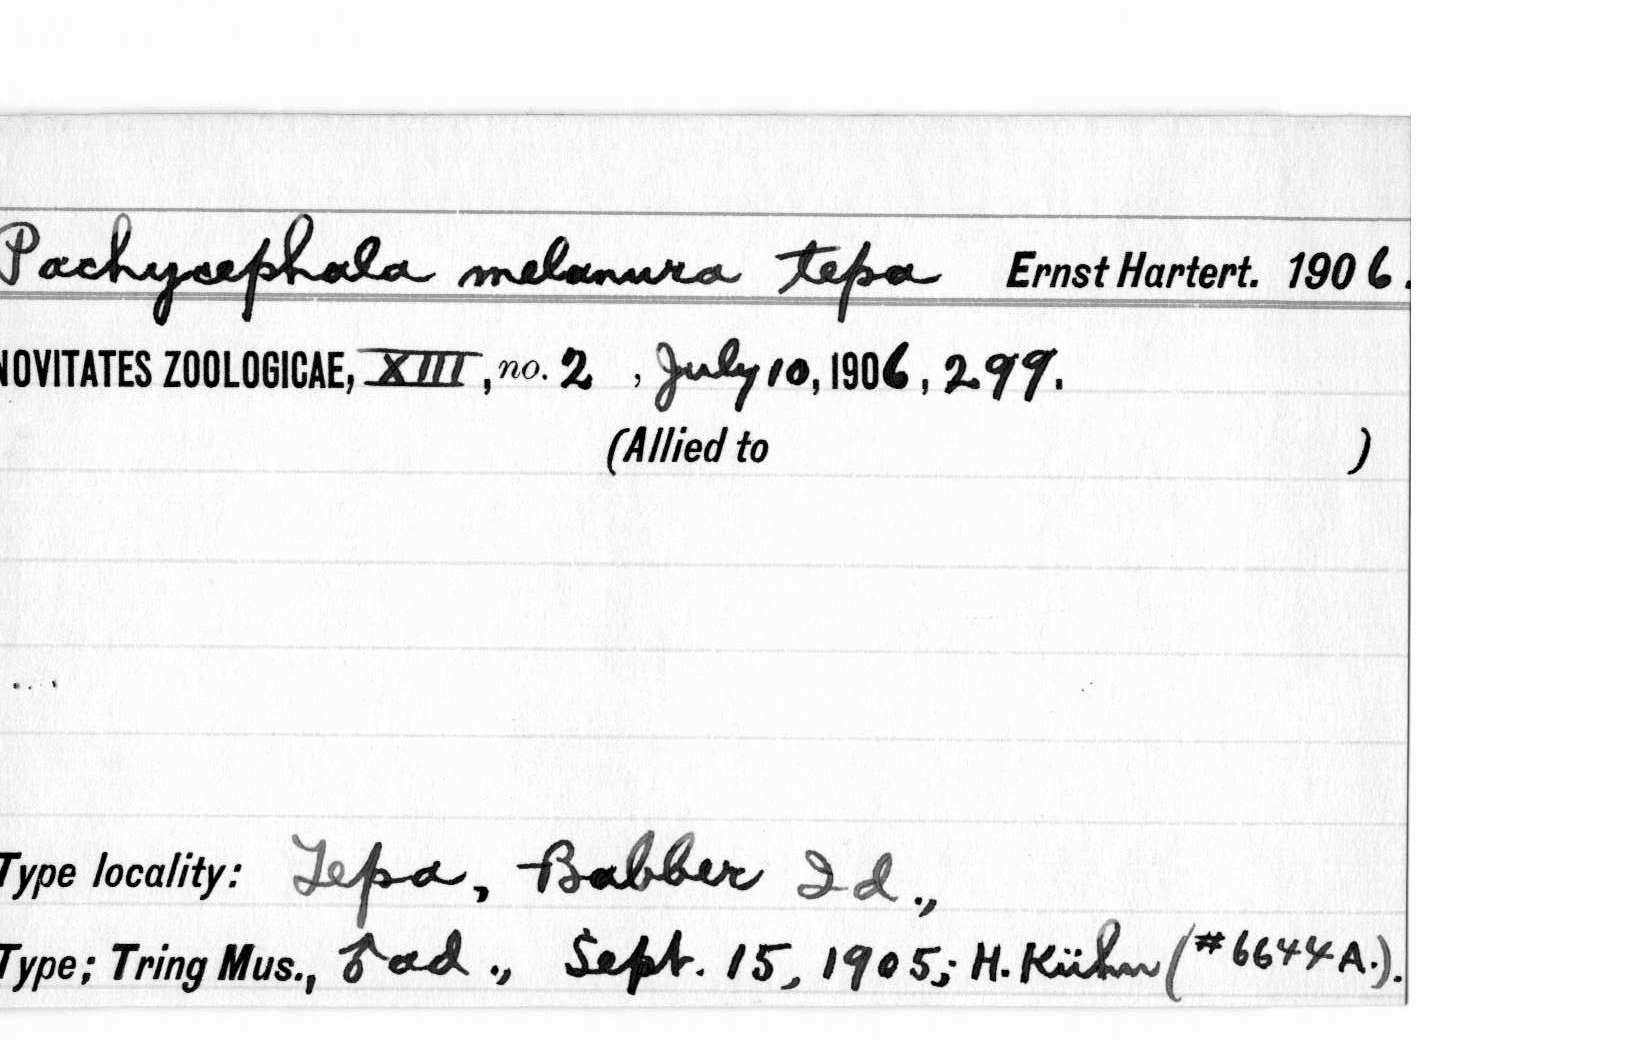 Pachycephala melanura tepa Ernst Hartert. 1906.
NOVITATES ZOOLOGICAE, XIII, no. 2 , July 10, 1906, 299.
(Allied to )
Type locality: Tepa, Babber Id.,
Type; Tring Mus., ♂ ad., Sept. 15, 1905; H. Kühn (#6644A.).